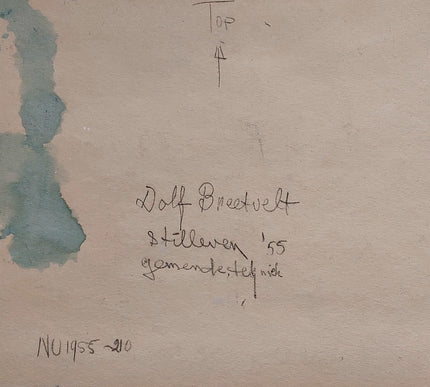 Top
Dolf Breetvelt
Stilleven '55
gemengde tekniek
NU1955-210